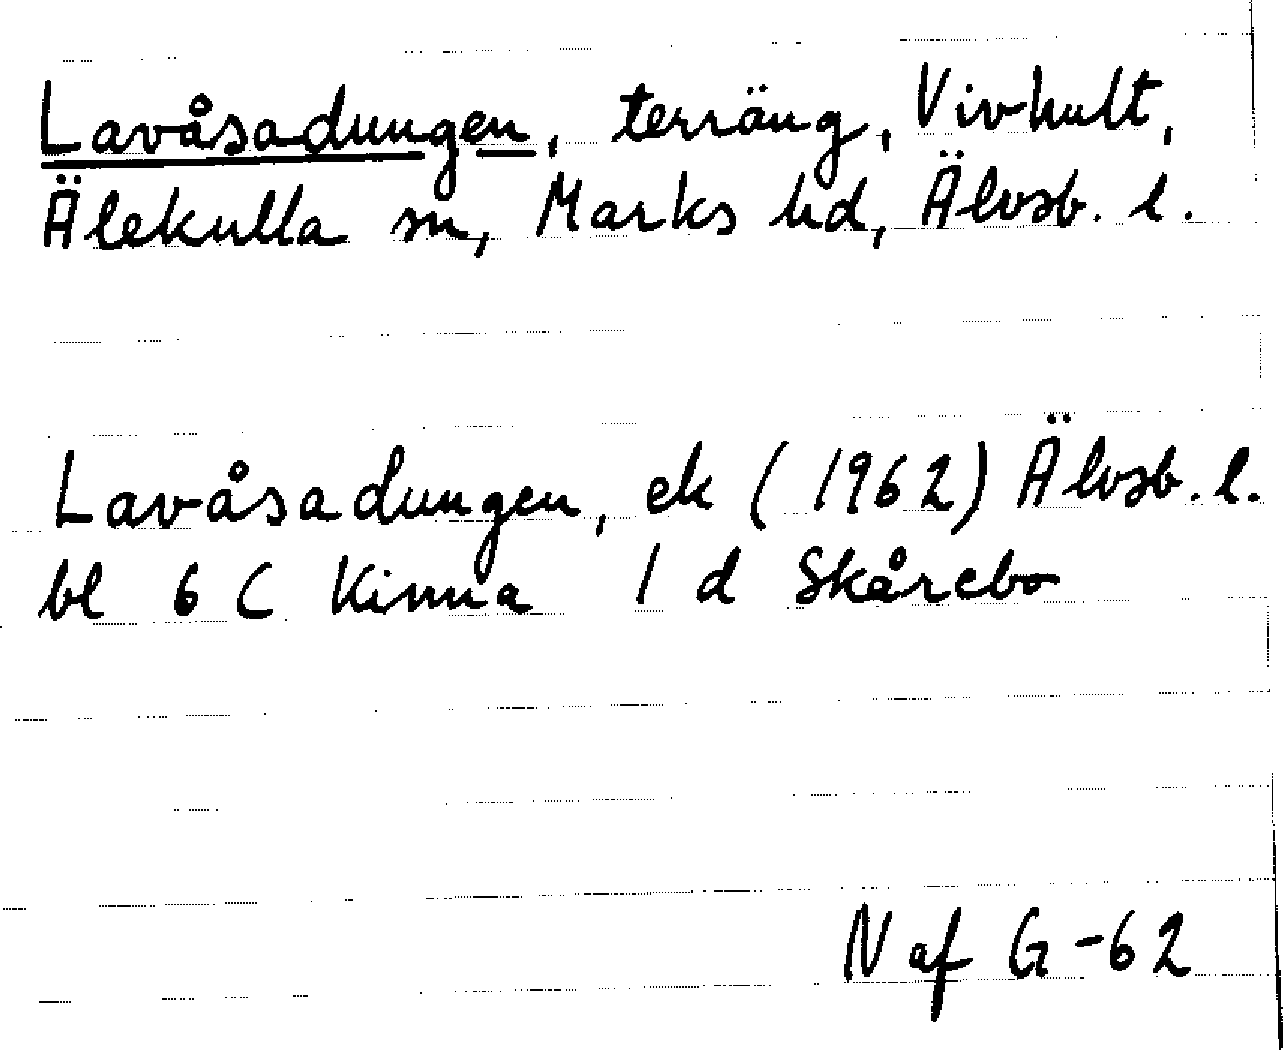 Lavåsadungen, terräng, Vivhult,
Älekulla sn, Marks hd, Älvsb. l.
Lavåsadungen, ek (1962) Älvsb. l.
bl 6 C Kinna 1 d Skårebo
N af G -62